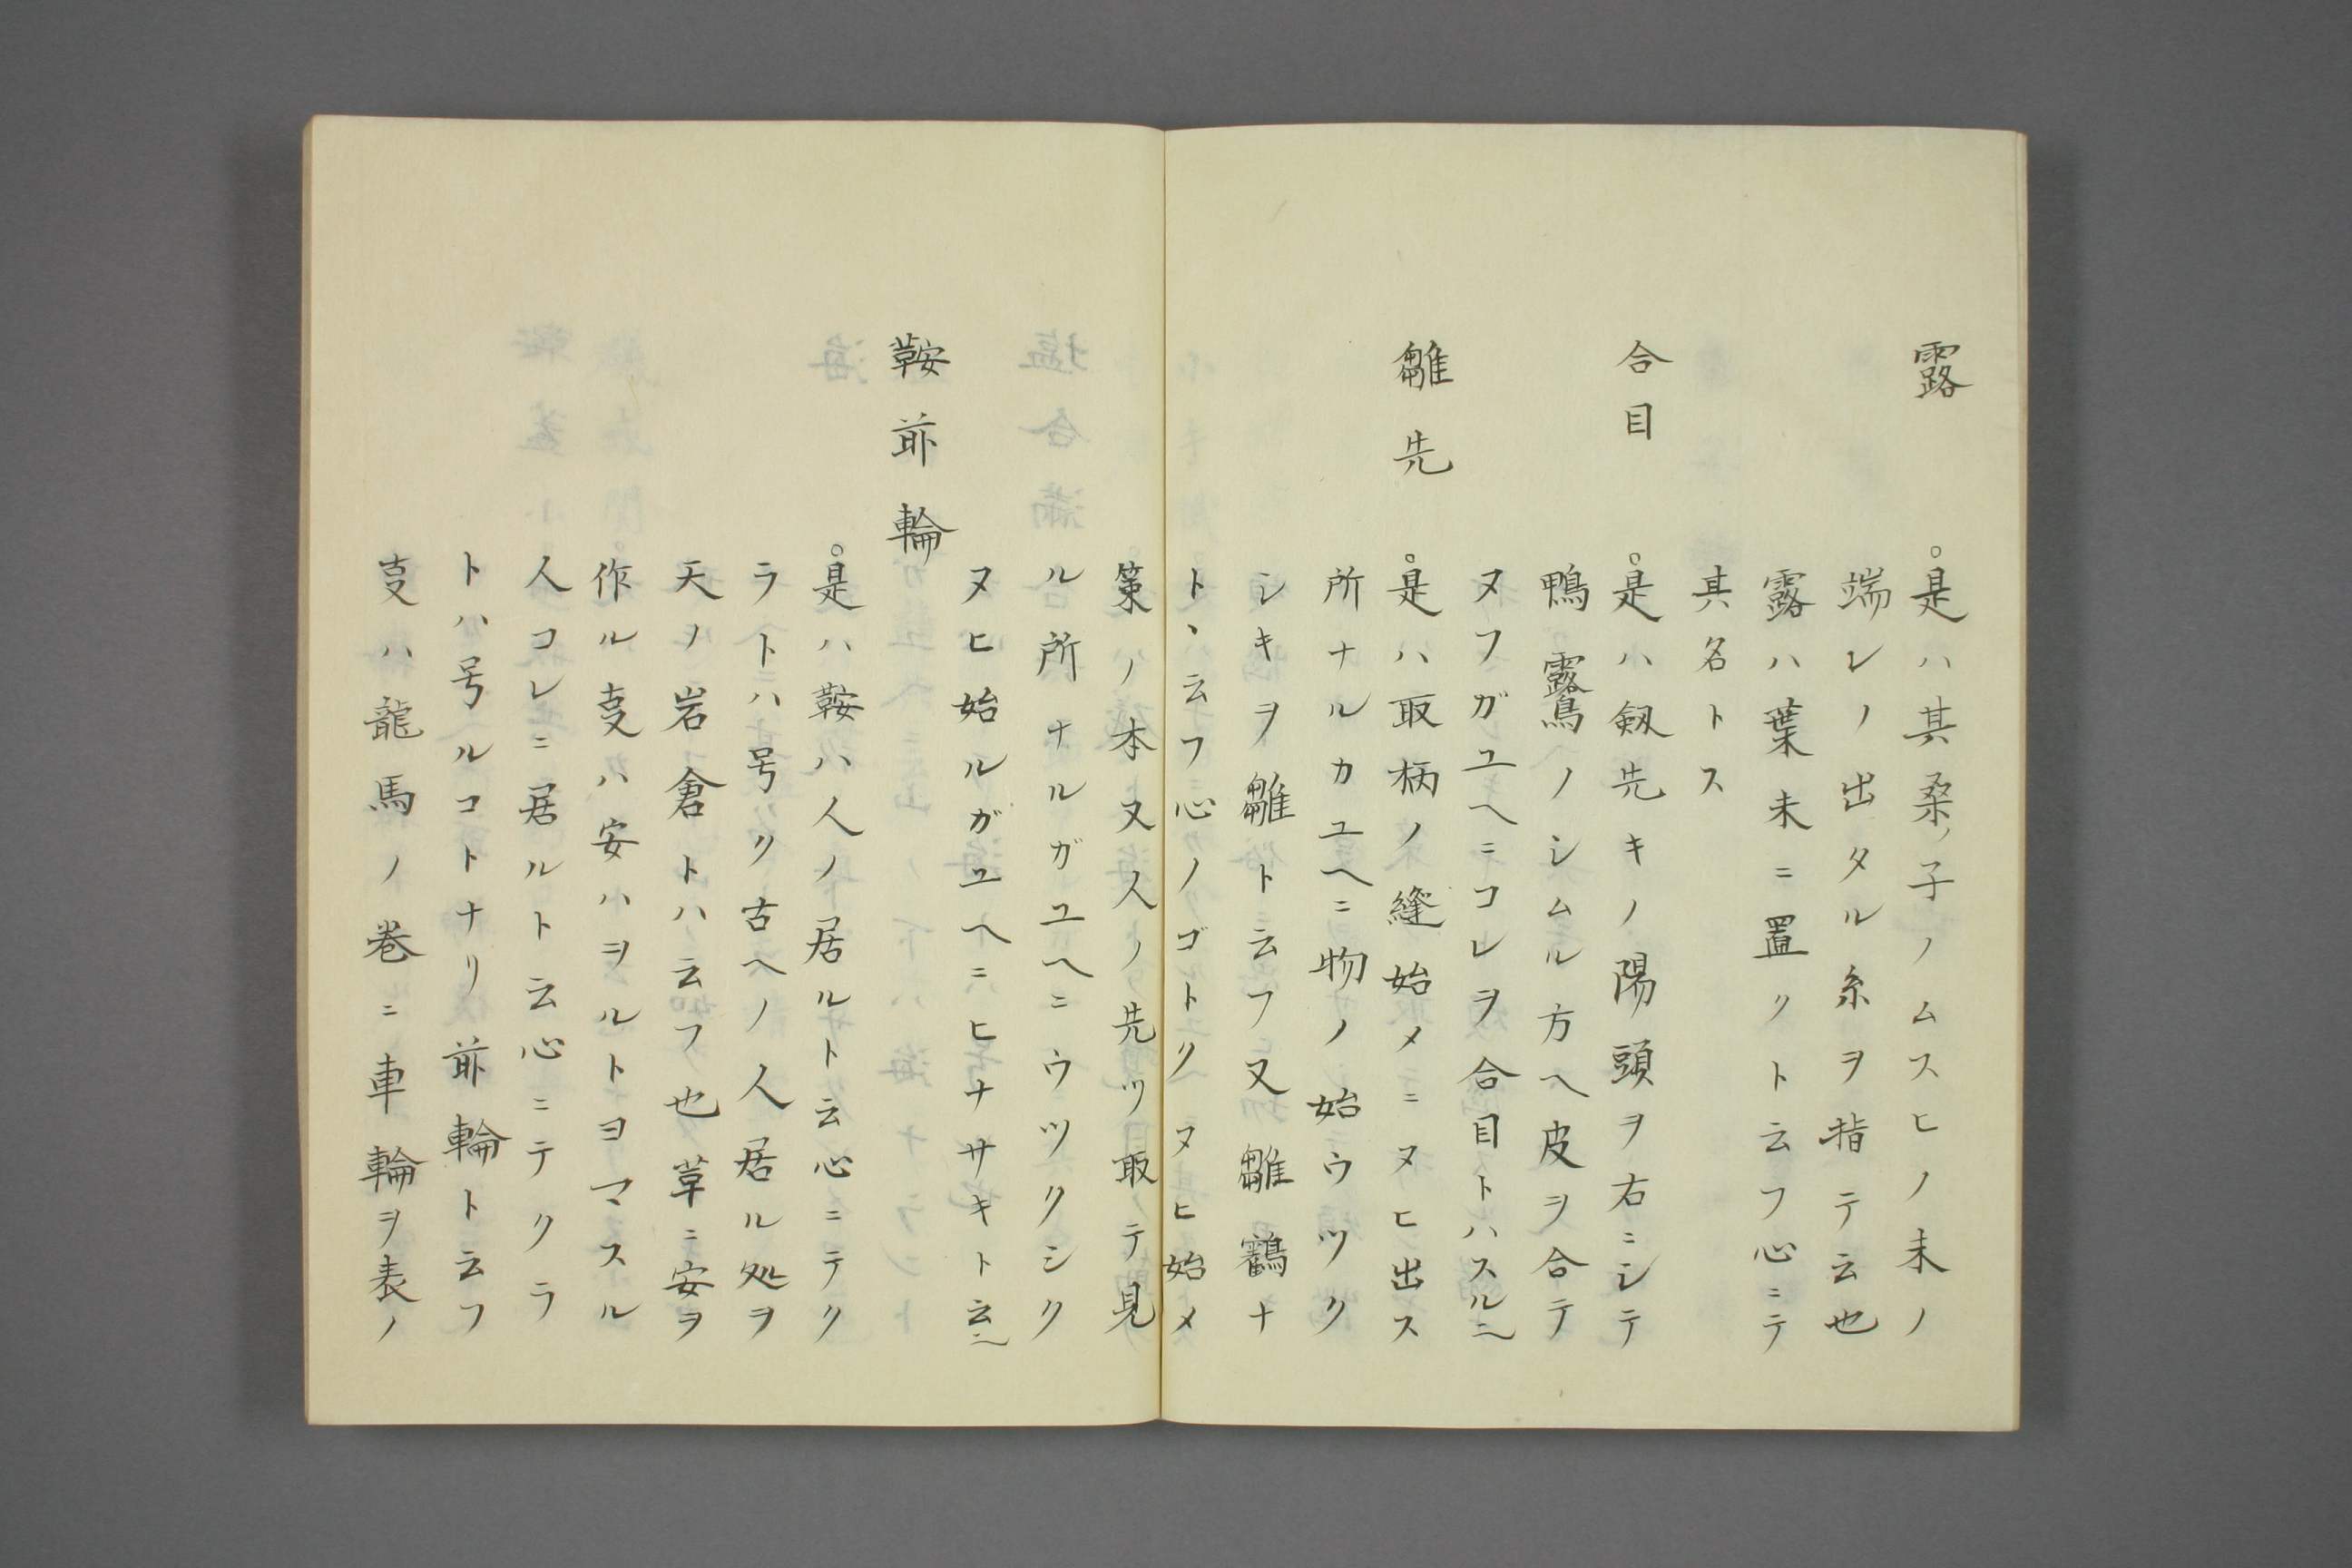 露
○是ハ其桑ノ子ノムスヒノ末ノ
端レノ出タル糸ヲ指テ云也
露ハ葉末ニ置クト云フ心ニテ
其名トス
合目
○是ハ剱先キノ陽頭ヲ右ニシテ
鴨露鳥ノシムル方ヘ皮ヲ合テ
ヌフガユヘニコレヲ合目トハスル也
雛先
○是ハ取柄ノ縫始メニヌヒ出ス
所ナルカユヘニ物ノ始ウツク
シキヲ雛ト云フ又雛鶴ナ
ト、云フ心ノゴトクヌヒ始メ
策ノ本又人ノ先ツ目取テ見
ル所ナルガユヘニウツクシク
ヌヒ始ルガユヘニヒナサキト云也
鞍前輪
○是ハ鞍ハ人ノ居ルト云心ニテク
ラトハ号ク古ヘノ人居ル処ヲ
天ノ岩倉トハ云フ也草ニ安ヲ
作ル叓ハ安ハヲルトヨマスル
人コレニ居ルト云心ニテクラ
トハ号ルコトナリ前輪ト云フ
叓ハ龍馬ノ巻ニ車輪ヲ表ノ